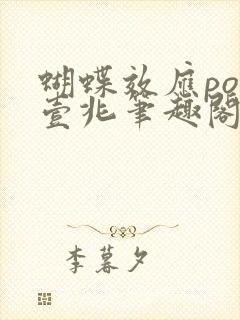 蝴蝶效应po
壹兆笔趣阁
李暮夕